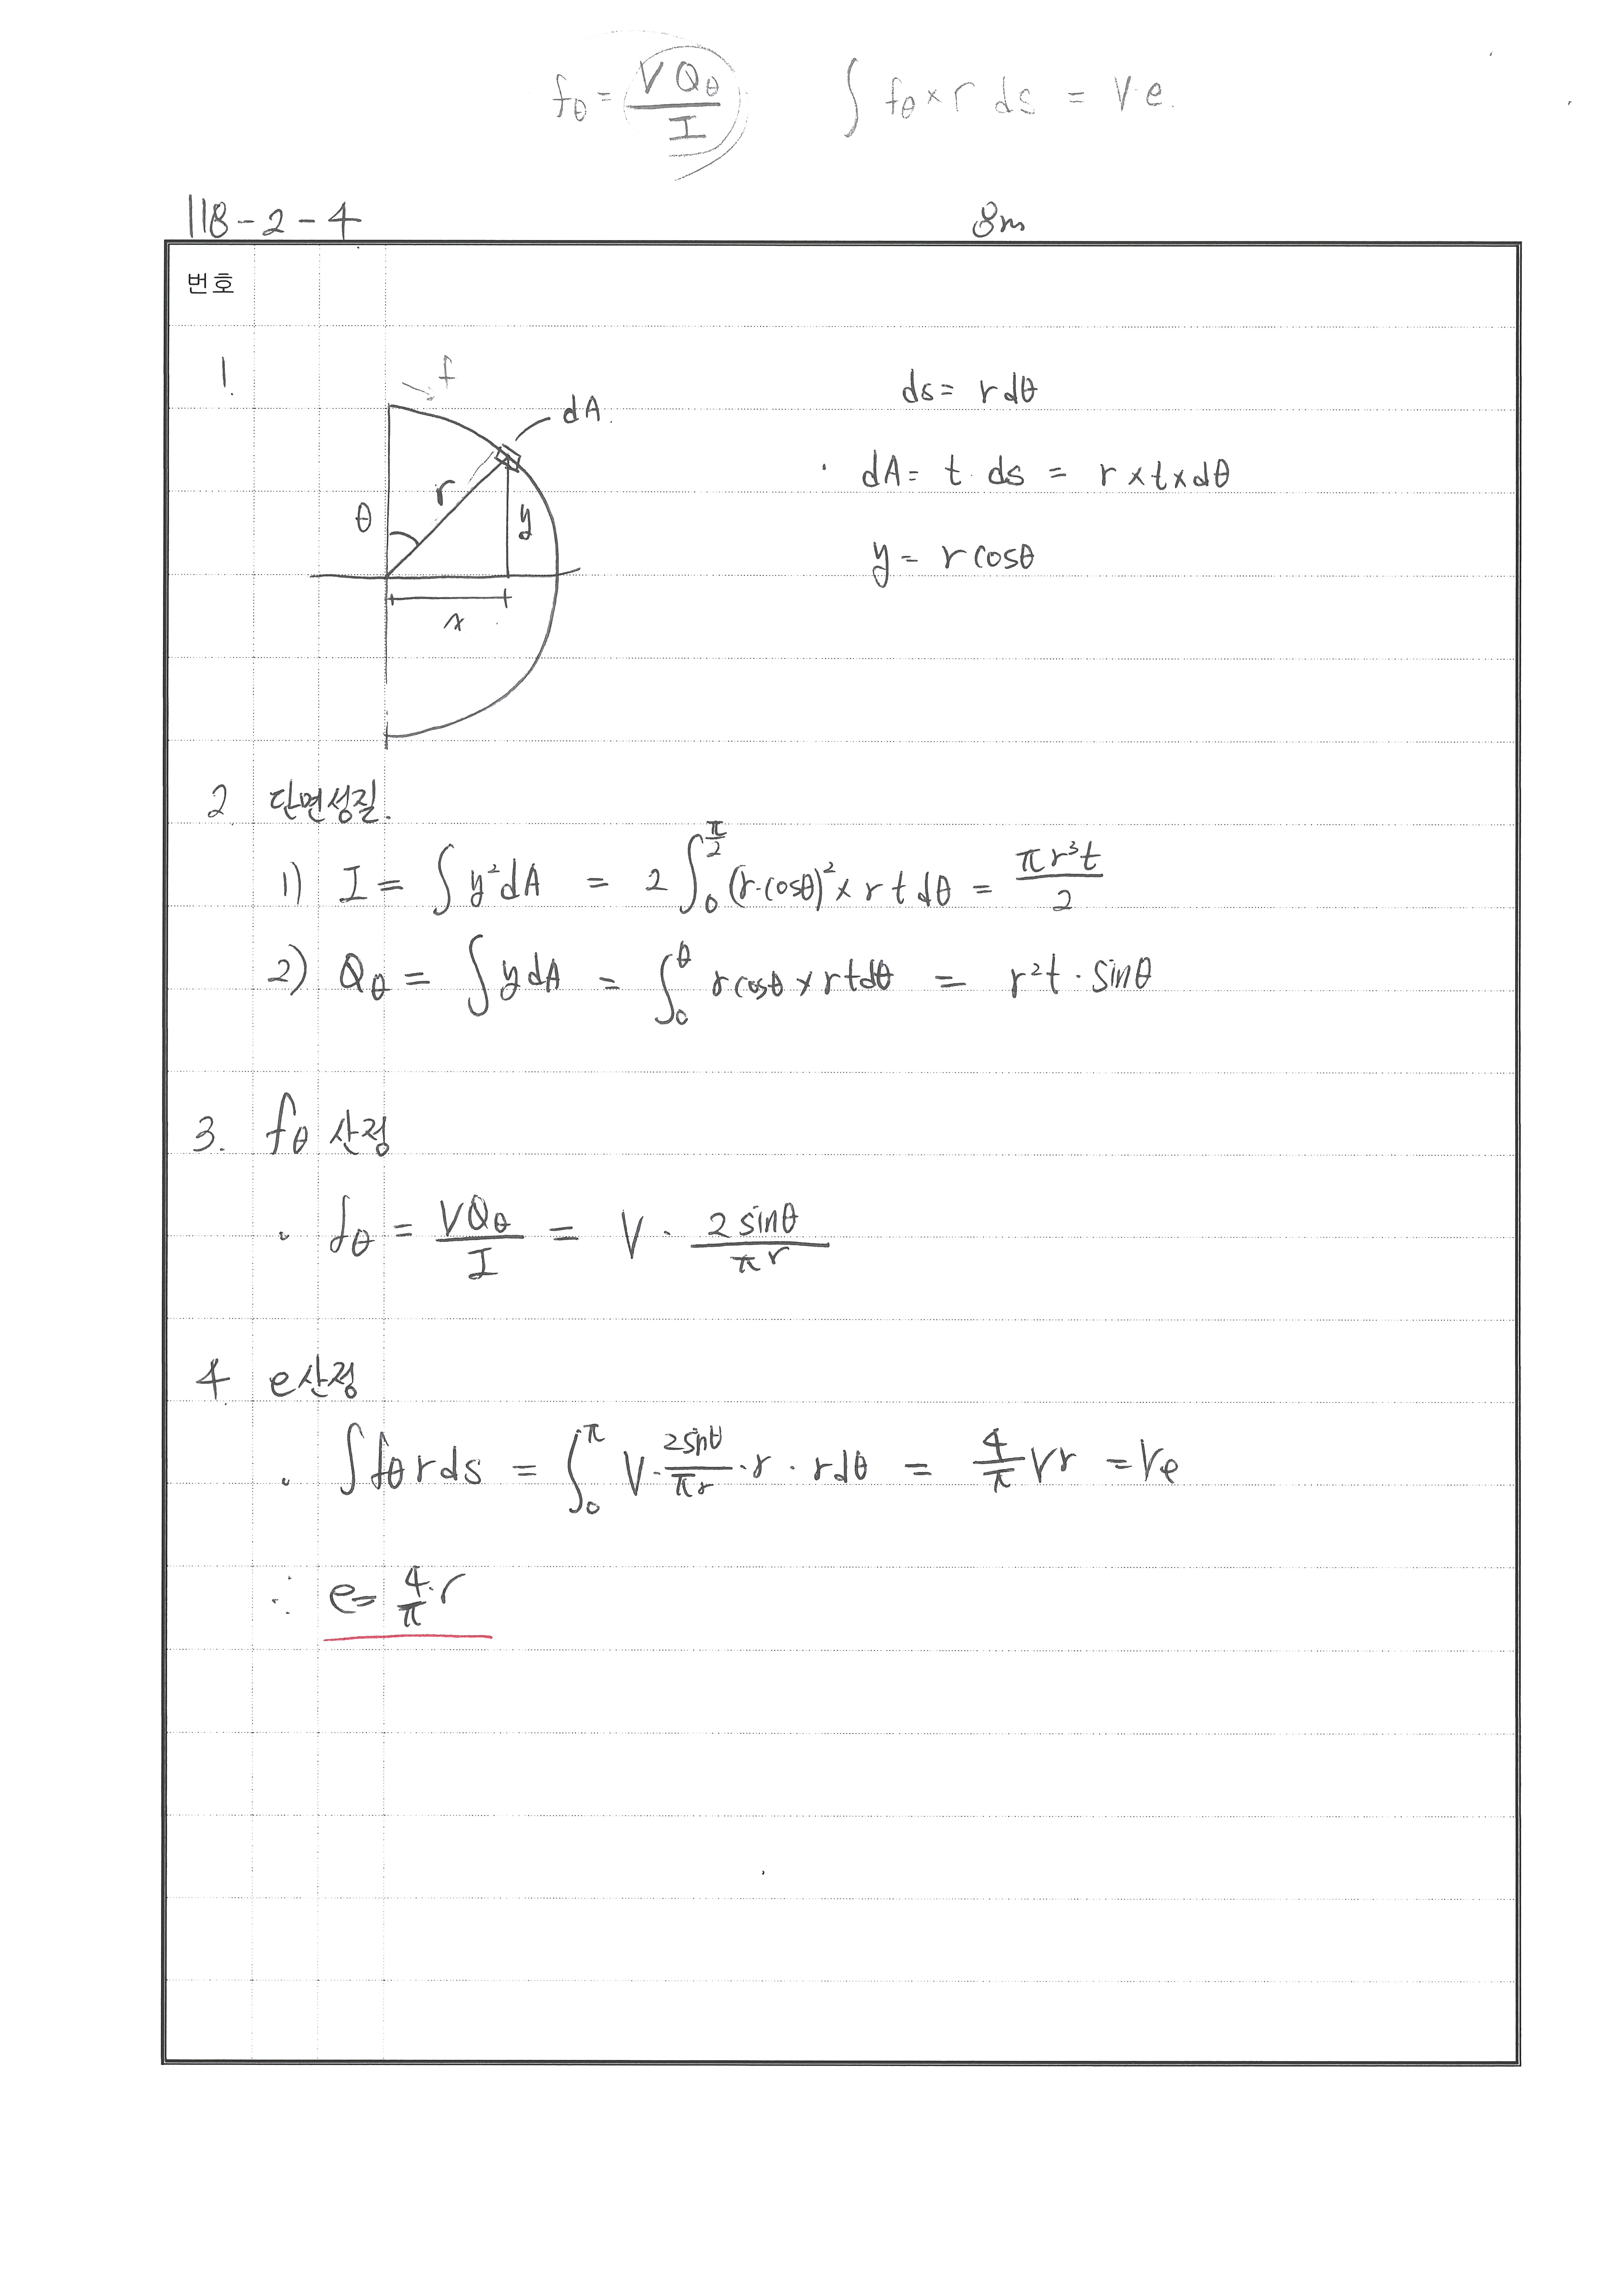 fθ = VQθ/I   ∫ fθ × r ds = V·e.
118-2-4   8m
번호
1.
f
dA.
ds = r dθ
r
θ
y
· dA = t · ds = r × t × dθ
y = r cosθ
x
2 단면성질.
1) I = ∫ y² dA = 2 ∫₀^(π/2) (r·cosθ)² × r t dθ = πr³t/2
2) Qθ = ∫ y dA = ∫₀^θ r cosθ × r t dθ = r²t · sinθ
3. fθ 산정
· fθ = VQθ/I = V · 2 sinθ/πr
4 e 산정
· ∫ fθ r ds = ∫₀^π V · 2sinθ/πr · r · r dθ = 4/π Vr = Ve
∴ e = 4/π · r